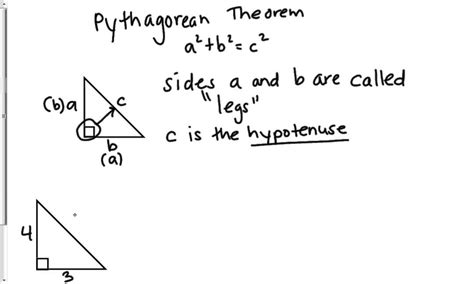 Pythagorean Theorem
a²+b²=c²
sides a and b are called
"legs"
c is the hypotenuse
(b) a
c
b
(a)
4
3